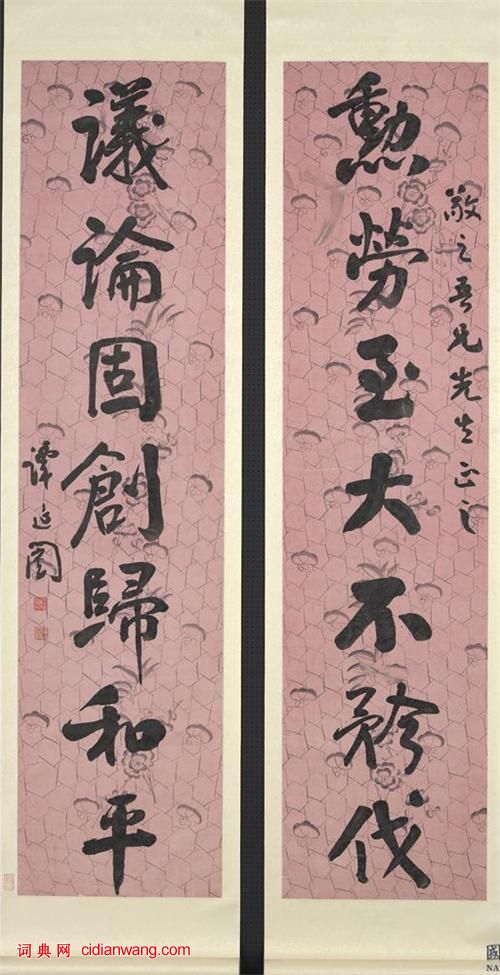 敬之吾兄先生正之
勳勞至大不矜伐
議論固創歸和平
譚延闓
词典网 cidianwang.com
NA